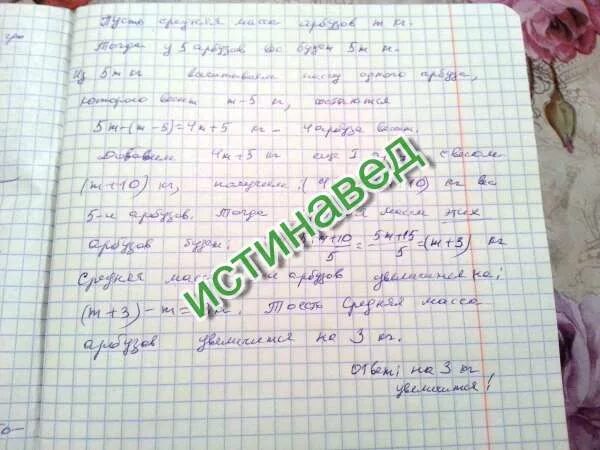 Пусть средняя масса арбузов m кг.
Тогда у 5 арбузов вес будет 5m кг.
Из 5m кг вычитываем массу одного арбуза,
которого весит m-5 кг, остаются
5m-(m-5)=4m+5 кг - 4 арбуза весят.
Добавим 4m+5 кг еще 1 с весом
(m+10) кг, получим: (4 10) кг вес
5-и арбузов. Тогда масса этих
арбузов будет: m+10/5 = 5m+15/5 = (m+3) кг
Средняя арбузов увеличится на:
(m+3)-m= Тоесть средняя масса
арбузов увеличится на 3 кг.
Ответ: на 3 кг
увеличится!
истинавед